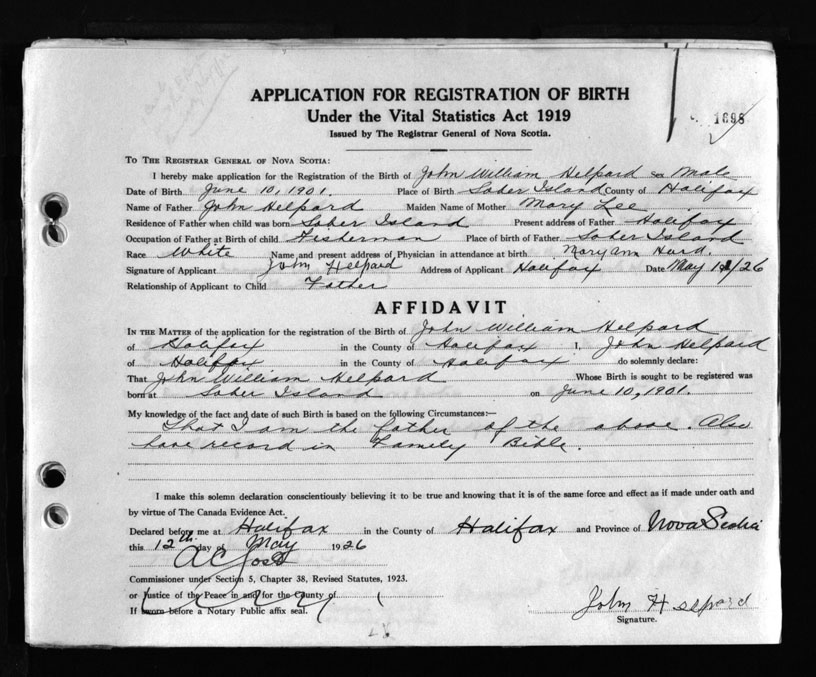 APPLICATION FOR REGISTRATION OF BIRTH
Under the Vital Statistics Act 1919
Issued by The Registrar General of Nova Scotia.
1698
TO THE REGISTRAR GENERAL OF NOVA SCOTIA:
I hereby make application for the Registration of the Birth of John William Helpard sex Male
Date of Birth June 10, 1901. Place of Birth Sober Island County of Halifax
Name of Father John Helpard Maiden Name of Mother Mary Lee
Residence of Father when child was born Sober Island Present address of Father Halifax
Occupation of Father at Birth of child Fisherman Place of birth of Father Sober Island
Race White Name and present address of Physician in attendance at birth Mary Ann Hurd.
Signature of Applicant John Helpard Address of Applicant Halifax Date May 12/26
Relationship of Applicant to Child Father
AFFIDAVIT
IN THE MATTER of the application for the registration of the Birth of John William Helpard
of Halifax in the County of Halifax I, John Helpard
of Halifax in the County of Halifax do solemnly declare:
That John William Helpard Whose Birth is sought to be registered was
born at Sober Island on June 10, 1901.
My knowledge of the fact and date of such Birth is based on the following Circumstances:—
That I am the father of the above. Also
have record in Family Bible.
I make this solemn declaration conscientiously believing it to be true and knowing that it is of the same force and effect as if made under oath and
by virtue of The Canada Evidence Act.
Declared before me at Halifax in the County of Halifax and Province of Nova Scotia
this 12th day of May 1926
A C Jost
Commissioner under Section 5, Chapter 38, Revised Statutes, 1923.
or Justice of the Peace in and for the County of
If sworn before a Notary Public affix seal.
John Helpard
Signature.